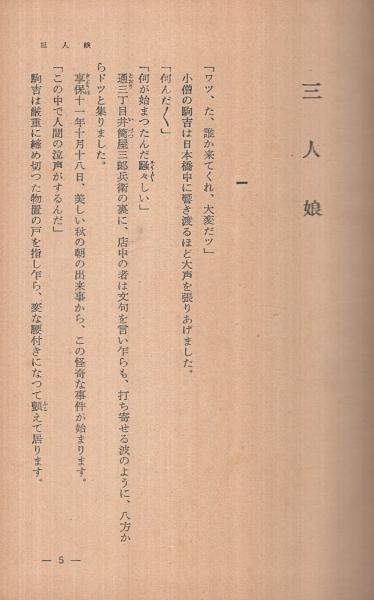 三人娘
三人娘
一
「ワツ、た、誰か来てくれ、大変だツ」
小僧の駒吉は日本橋中に響き渡るほど大声を張りあげました。
「何んだ〳〵」
「何が始まつたんだ騒々しい」
通三丁目井筒屋三郎兵衛の裏に、店中の者は文句を言い乍らも、打ち寄せる波のように、八方か
らドツと集りました。
享保十一年十月十八日、美しい秋の朝の出来事から、この怪奇な事件が始まります。
「この中で人間の泣声がするんだ」
駒吉は厳重に締め切つた物置の戸を指し乍ら、変な腰付きになつて顫えて居ります。
— 5 —